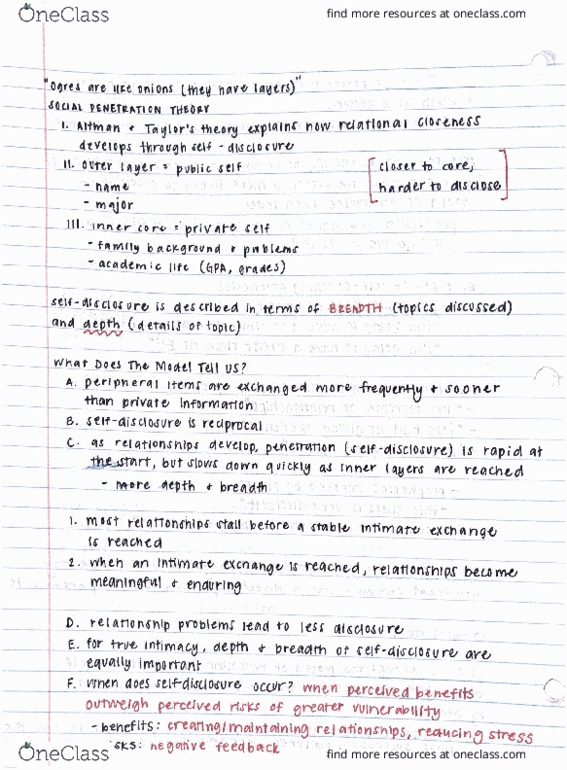 OneClass
find more resources at oneclass.com
"Ogres are like onions (they have layers)"
SOCIAL PENETRATION THEORY
I. Altman & Taylor's theory explains how relational closeness
develops through self-disclosure
II. outer layer = public self
- name
- major
[closer to core,
harder to disclose]
III. inner core = private self
- family background & problems
- academic life (GPA, grades)
self-disclosure is described in terms of BREADTH (topics discussed)
and depth (details of topic)
What Does The Model Tell US?
A. peripheral items are exchanged more frequently & sooner
than private information
B. self-disclosure is reciprocal
C. as relationships develop, penetration (self-disclosure) is rapid at
the start, but slows down quickly as inner layers are reached
- more depth & breadth
1. most relationships stall before a stable intimate exchange
is reached
2. when an intimate exchange is reached, relationships become
meaningful & enduring
D. relationship problems lead to less disclosure
E. for true intimacy, depth & breadth of self-disclosure are
equally important
F. When does self-disclosure occur? when perceived benefits
outweigh perceived risks of greater vulnerability
- benefits: creating/maintaining relationships, reducing stress
sks: negative feedback
OneClass
find more resources at oneclass.com